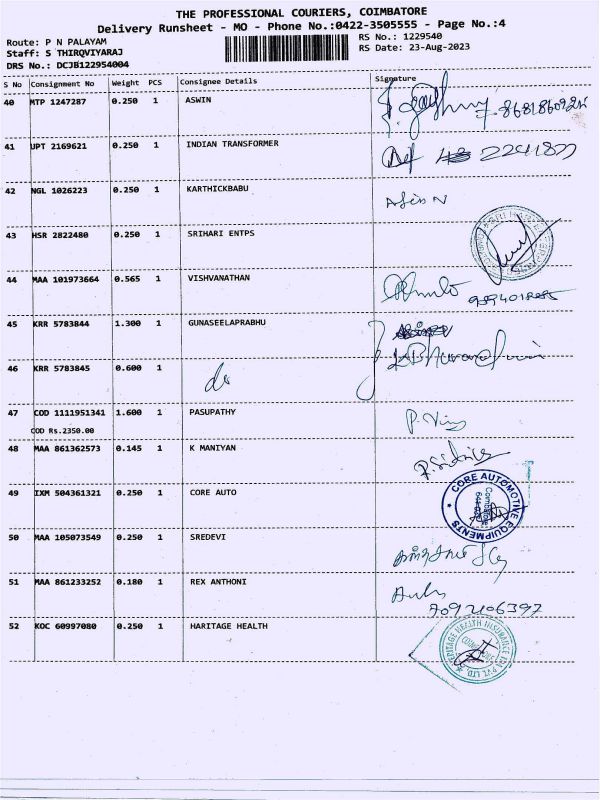 THE PROFESSIONAL COURIERS, COIMBATORE
Delivery Runsheet - MO - Phone No.:0422-3505555 - Page No.:4
Route: P N PALAYAM
RS No.: 1229540
Staff: S THIRQVIYARAJ
RS Date: 23-Aug-2023
DRS No.: DCJB122954004
S No Consignment No Weight PCS Consignee Details Signature
40 MTP 1247287 0.250 1 ASWIN
41 UPT 2169621 0.250 1 INDIAN TRANSFORMER 2241877
42 NGL 1026223 0.250 1 KARTHICKBABU
43 HSR 2822480 0.250 1 SRIHARI ENTPS
44 MAA 101973664 0.565 1 VISHVANATHAN
45 KRR 5783844 1.300 1 GUNASEELAPRABHU
46 KRR 5783845 0.600 1 do
47 COD 1111951341 1.600 1 PASUPATHY
COD Rs.2350.00
48 MAA 861362573 0.145 1 K MANIYAN
49 IXM 504361321 0.250 1 CORE AUTO
CORE AUTOMOTIVE EQUIPMENTS
50 MAA 105073549 0.250 1 SREDEVI
51 MAA 861233252 0.180 1 REX ANTHONI
7092106397
52 KOC 60997080 0.250 1 HARITAGE HEALTH
HERITAGE HEALTH INSURANCE TPA PVT LTD.